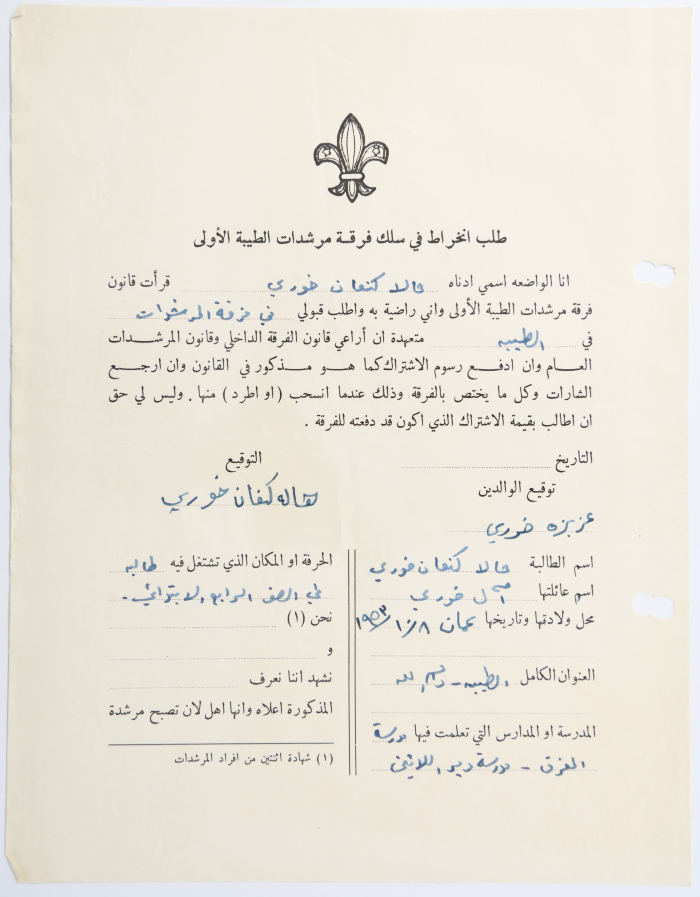 طلب انخراط في سلك فرقة مرشدات الطيبة الأولى
انا الواضعه اسمي ادناه هالا كنعان خوري قرأت قانون
فرقة مرشدات الطيبة الأولى واني راضية به واطلب قبولي في فرقة المرشدات
في الطيبه متعهدة ان أراعي قانون الفرقة الداخلي وقانون المرشدات
العام وان ادفع رسوم الاشتراك كما هو مذكور في القانون وان ارجع
الشارات وكل ما يختص بالفرقة وذلك عندما انسحب ( او اطرد ) منها . وليس لي حق
ان اطالب بقيمة الاشتراك الذي اكون قد دفعته للفرقة .
التاريخ
التوقيع
هاله كنعان خوري
توقيع الوالدين
عزيزه خوري
اسم الطالبة هالا كنعان خوري
اسم عائلتها خوري
محل ولادتها وتاريخها عمان ١٠/٨/١٩٥٣
العنوان الكامل الطيبه - رام الله
المدرسة او المدارس التي تعلمت فيها مدرسة
المفرق - مدرسة دير اللاتين
الحرفة او المكان الذي تشتغل فيه طالبه
في الصف الرابع الابتدائي -
نحن (١)
و
نشهد اننا نعرف
المذكورة اعلاه وانها اهل لان تصبح مرشدة
(١) شهادة اثنتين من افراد المرشدات